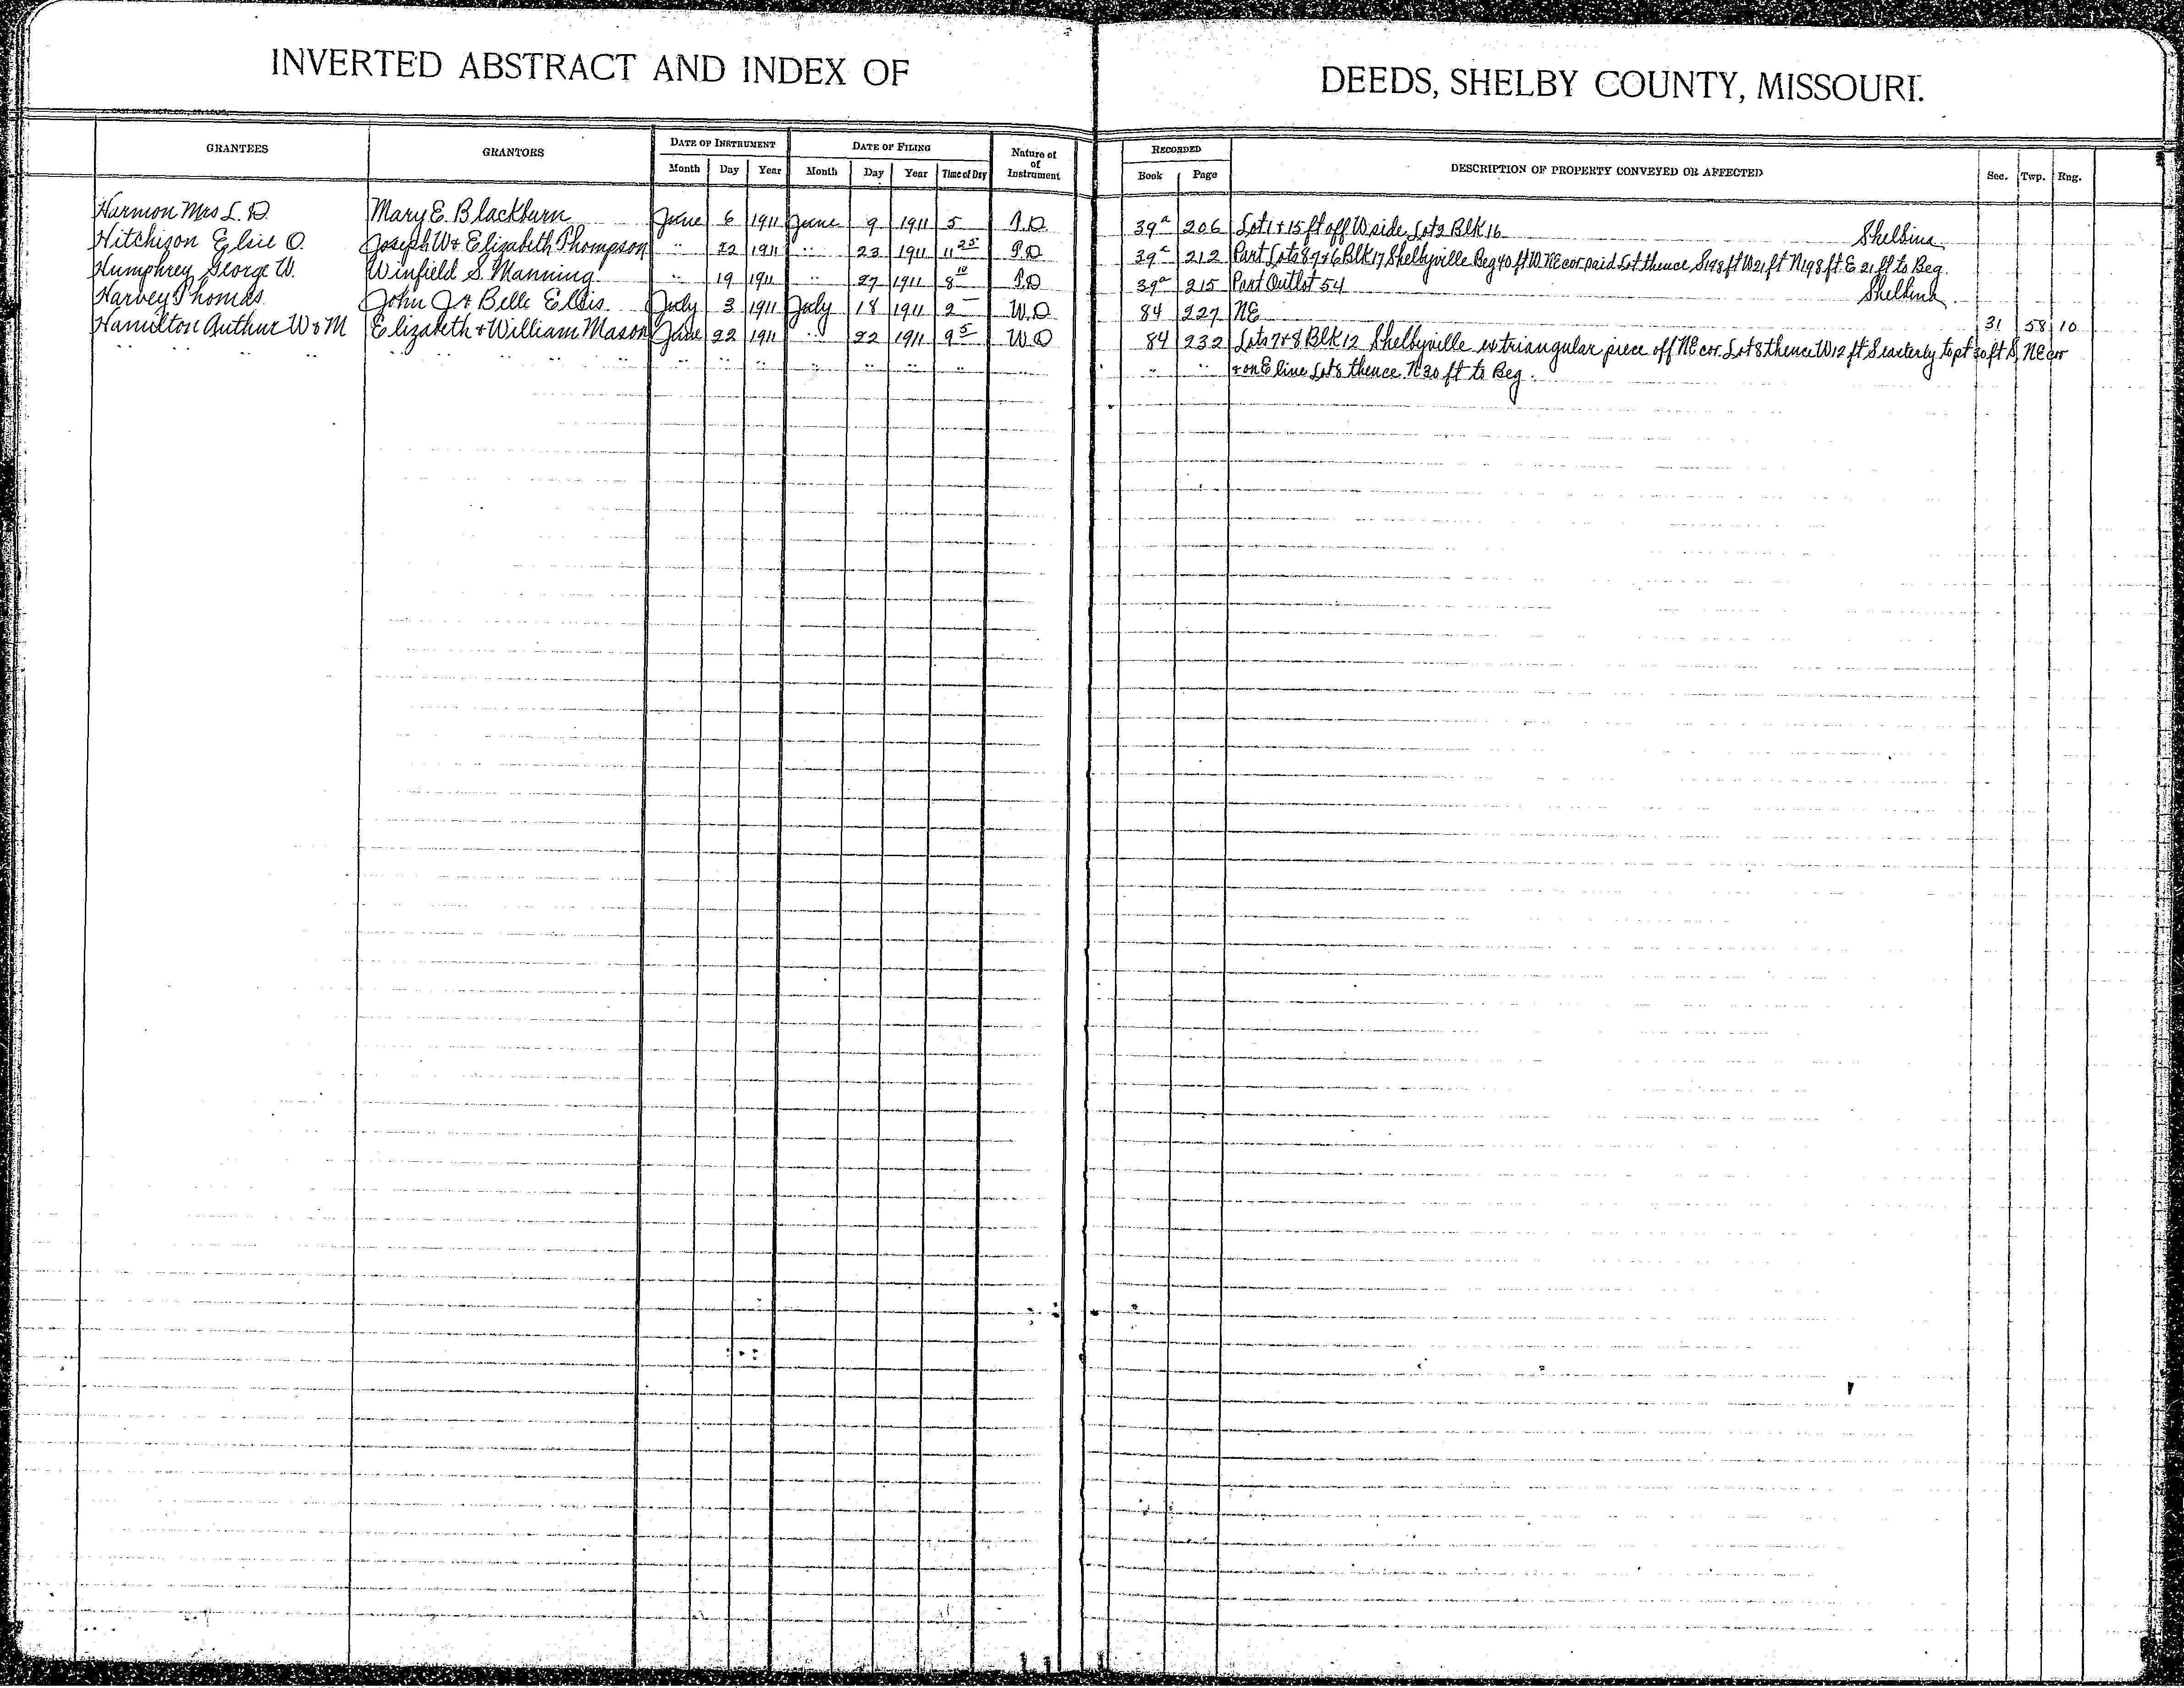 INVERTED ABSTRACT AND INDEX OF DEEDS, SHELBY COUNTY, MISSOURI.
GRANTEES GRANTORS DATE OF INSTRUMENT DATE OF FILING Nature of of Instrument RECORDED DESCRIPTION OF PROPERTY CONVEYED OR AFFECTED Sec. Twp. Rng.
Month Day Year Month Day Year Time of Day Book Page
Harmon Mrs L. D. Mary E. Blackburn June 6 1911 June 9 1911 5 39a 206 Lot 1 + 15 ft off W side Lot 2 Blk 16 Shelbina
Hitchison Elsie O. Joseph W + Elizabeth Thompson " 22 1911 " 23 1911 11 25 39a 212 Part Lots 8 9 + 6 Blk 17 Shelbyville Beg 40 ft W NE cor said Lot thence S 198 ft W 21 ft N 198 ft E 21 ft to Beg.
Humphrey George W. Winfield S. Manning " 19 1911 " 27 1911 8 10 39a 215 Part Outlot 54 Shelbina
Harvey Thomas John J + Belle Ellis July 3 1911 July 18 1911 2 – W.D 84 227 NE 31 58 10
Hamilton Arthur W + M Elizabeth + William Mason June 22 1911 " 22 1911 9 5 W D 84 232 Lots 7 + 8 Blk 12 Shelbyville ex triangular piece off NE cor. Lot 8 thence W 12 ft S easterly to pt 30 ft S, NE cor
" " " " " " " " " " " " " " " " " + on E line Lot 8 thence N 30 ft to Beg.